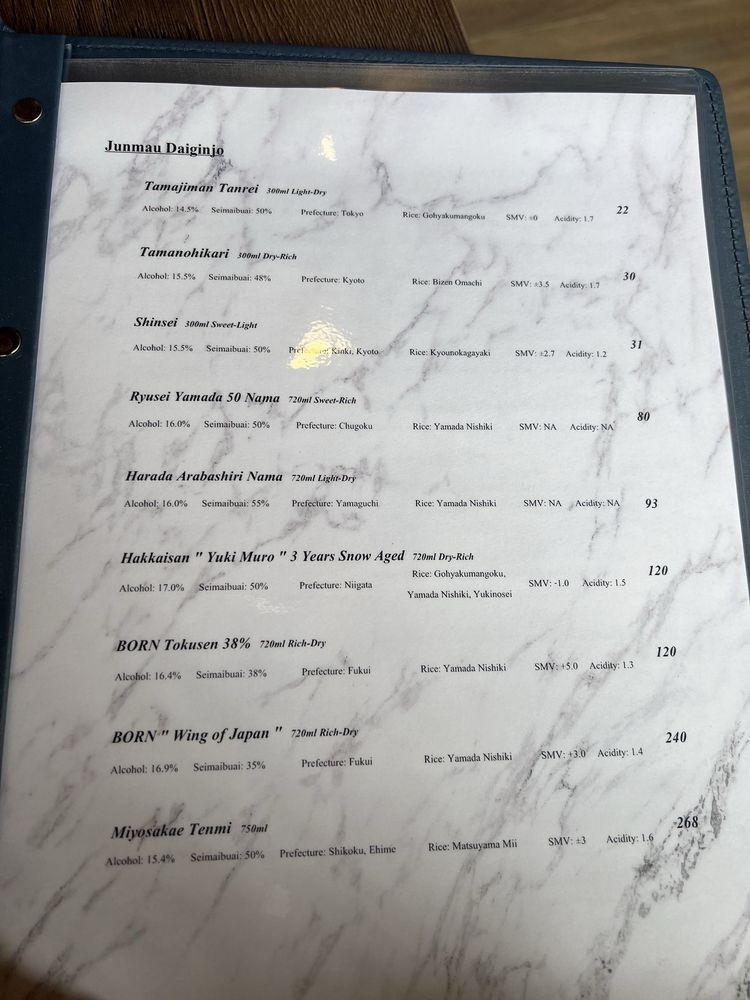 Junmau Daiginjo
Tamajiman Tanrei 300ml Light-Dry
Alcohol: 14.5% Seimaibuai: 50% Prefecture: Tokyo Rice: Gohyakumangoku SMV: ±0 Acidity: 1.7 22
Tamanohikari 300ml Dry-Rich
Alcohol: 15.5% Seimaibuai: 48% Prefecture: Kyoto Rice: Bizen Omachi SMV: ±3.5 Acidity: 1.7 30
Shinsei 300ml Sweet-Light
Alcohol: 15.5% Seimaibuai: 50% Prefecture: Kinki, Kyoto Rice: Kyounokagayaki SMV: ±2.7 Acidity: 1.2 31
Ryusei Yamada 50 Nama 720ml Sweet-Rich
Alcohol: 16.0% Seimaibuai: 50% Prefecture: Chugoku Rice: Yamada Nishiki SMV: NA Acidity: NA 80
Harada Arabashiri Nama 720ml Light-Dry
Alcohol: 16.0% Seimaibuai: 55% Prefecture: Yamaguchi Rice: Yamada Nishiki SMV: NA Acidity: NA 93
Hakkaisan " Yuki Muro " 3 Years Snow Aged 720ml Dry-Rich
Alcohol: 17.0% Seimaibuai: 50% Prefecture: Niigata Rice: Gohyakumangoku, SMV: -1.0 Acidity: 1.5 120
Yamada Nishiki, Yukinosei
BORN Tokusen 38% 720ml Rich-Dry
Alcohol: 16.4% Seimaibuai: 38% Prefecture: Fukui Rice: Yamada Nishiki SMV: +5.0 Acidity: 1.3 120
BORN " Wing of Japan " 720ml Rich-Dry
Alcohol: 16.9% Seimaibuai: 35% Prefecture: Fukui Rice: Yamada Nishiki SMV: +3.0 Acidity: 1.4 240
Miyosakae Tenmi 750ml
Alcohol: 15.4% Seimaibuai: 50% Prefecture: Shikoku, Ehime Rice: Matsuyama Mii SMV: ±3 Acidity: 1.6 268